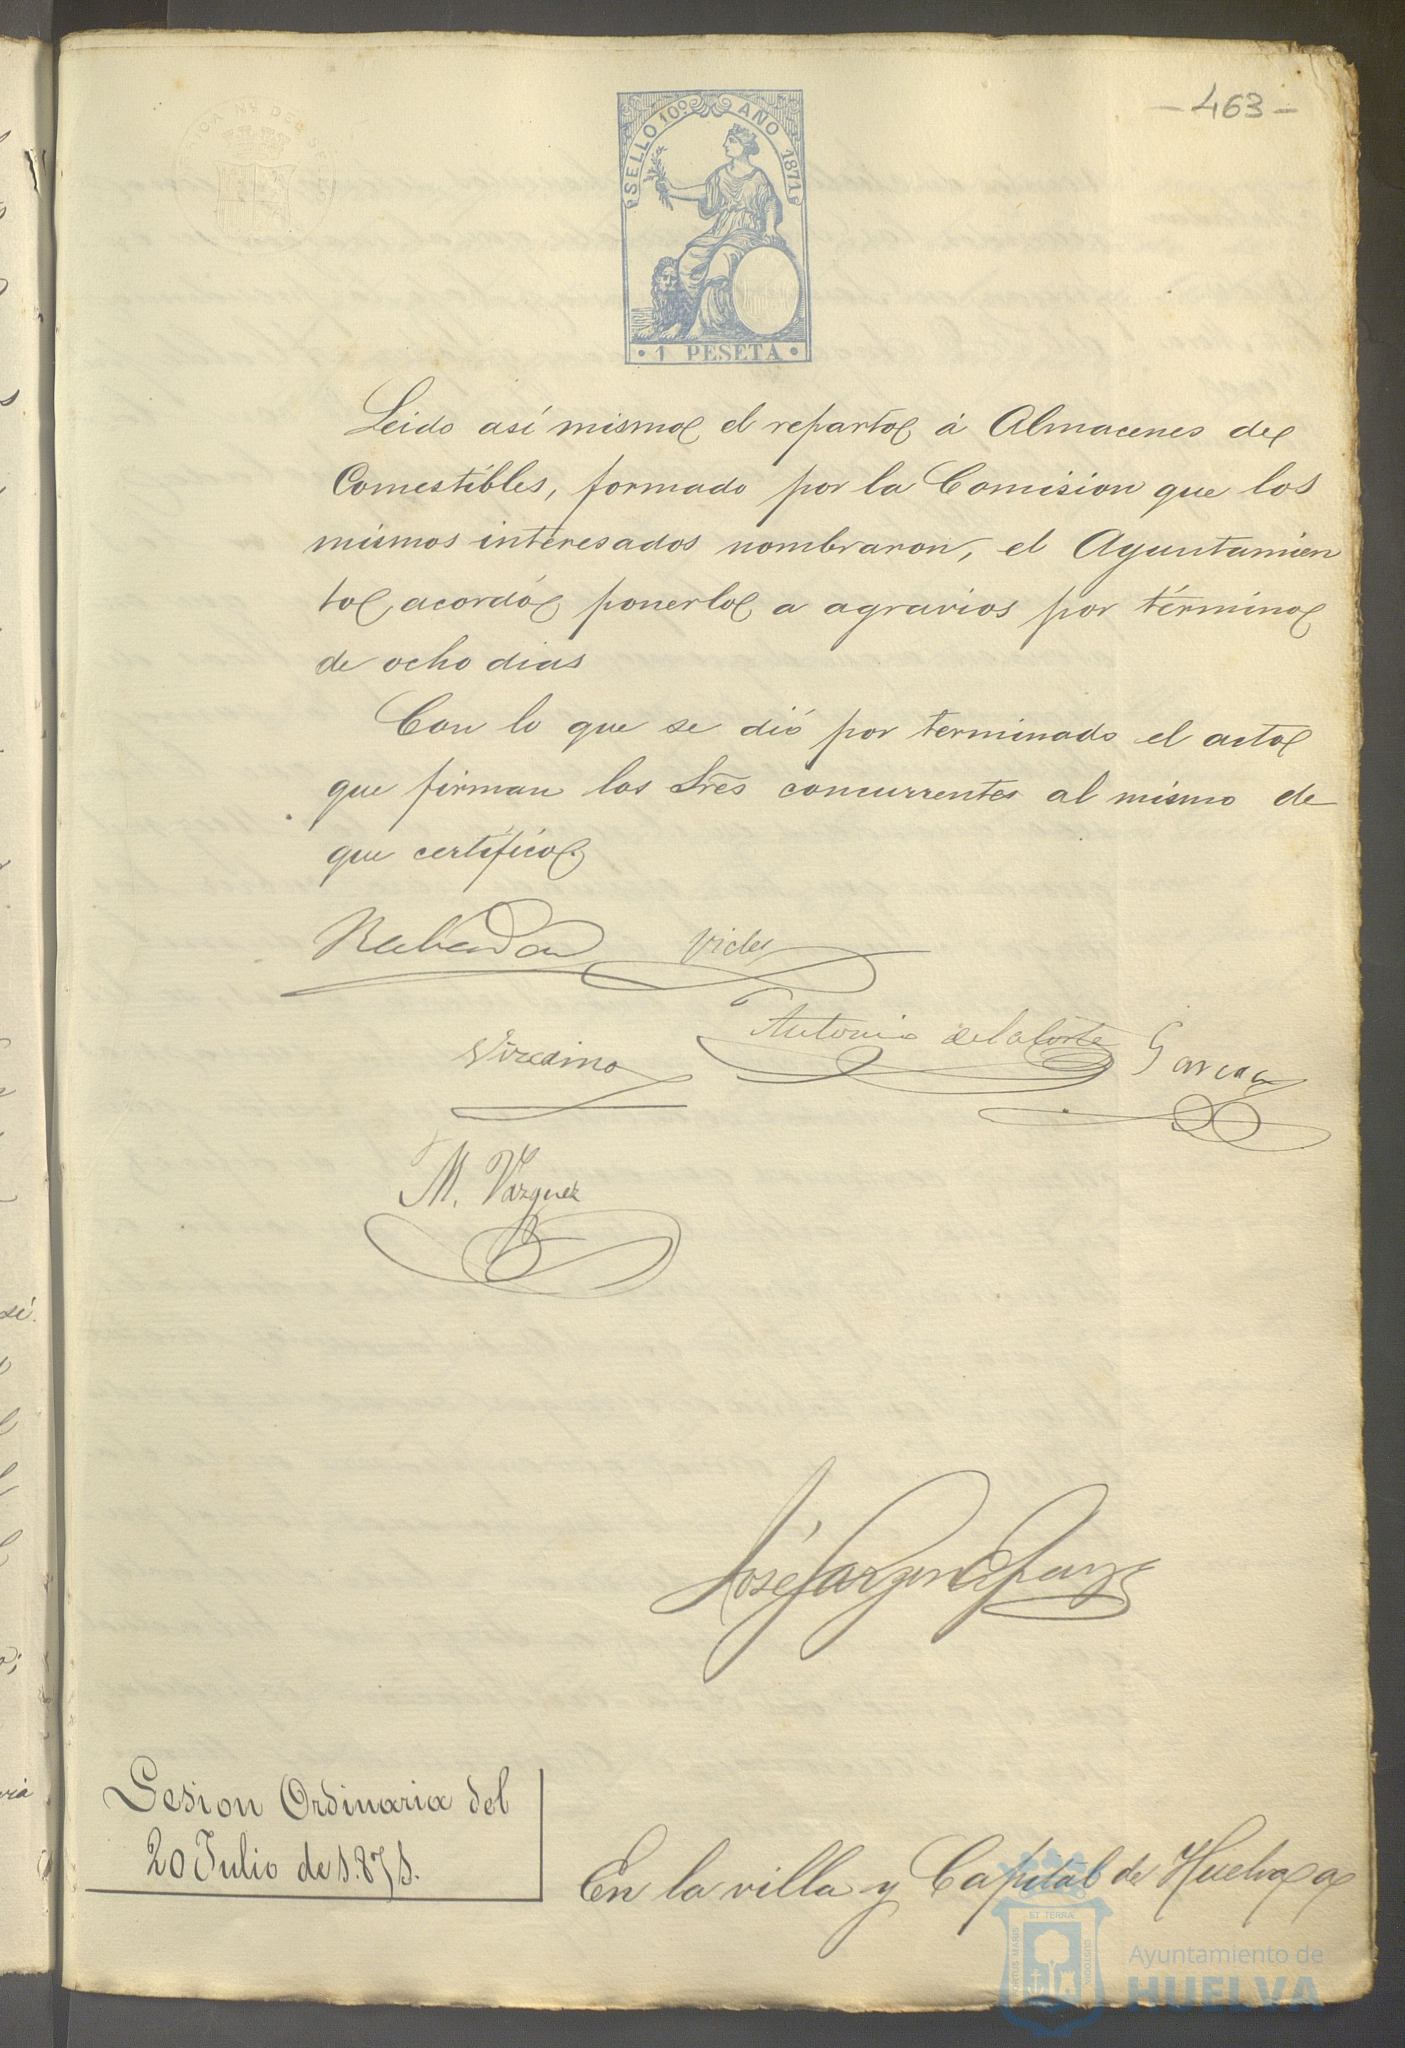 - 463 -
SELLO 10º AÑO 1871
· 1 PESETA ·
Leido así mismo el reparto á Almacenes de
Comestibles, formado por la Comision que los
mismos interesados nombraron, el Ayuntamien
to acordó ponerlo a agravios por término
de ocho dias
Con lo que se dió por terminado el acto
que firman los Sres concurrentes al mismo de
que certifico
Rabadan
Antonio de la Corte Garcia
M. Vazquez
José
Sesion Ordinaria del
20 Julio de 1.871.
En la villa y Capital de Huelva a
ET TERRA
Ayuntamiento de
HUELVA